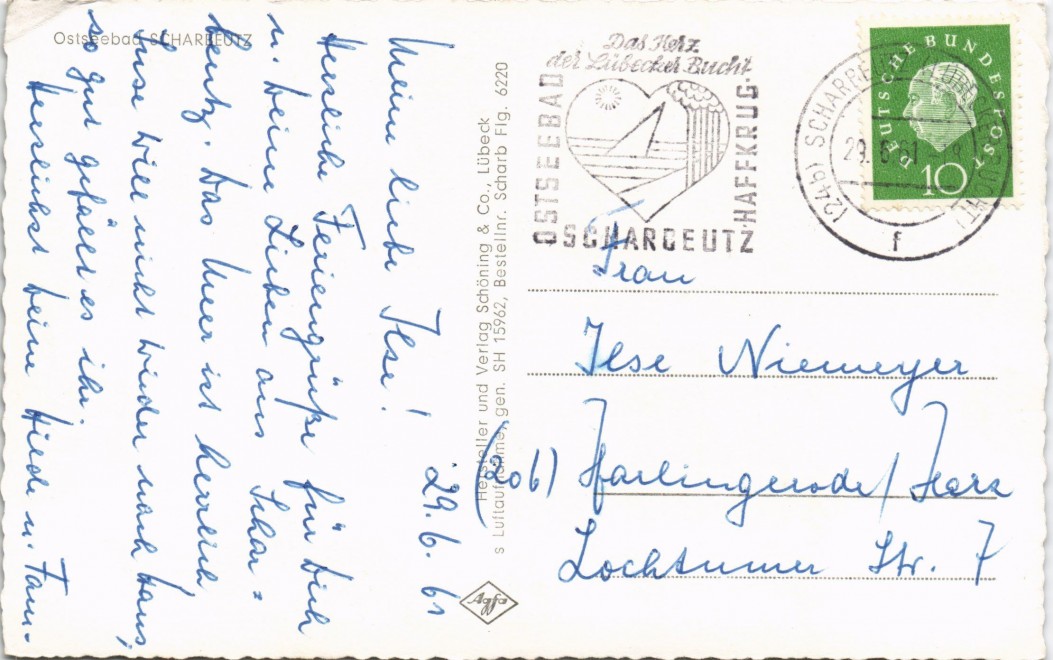 Ostseebad SCHARBEUTZ
29. 6. 61
Meine liebe Ilse!
Herzliche Feriengrüße für Dich
u. Deine Lieben aus Schar=
beutz. Das Meer ist herrlich
will nicht wieder nach Haus,
so gut gefällt es ihr.
Herzlichst Deine Hilde u. Fam.
Hersteller und Verlag Schöning & Co., Lübeck
s Luftaufnahme, gen. SH 15962, Bestellnr. Scharb Flg. 6220
Agfa
Das Herz
der Lübecker Bucht
OSTSEEBAD
SCHARBEUTZ
HAFFKRUG
(24b) SCHARBEUTZ (LÜBECKER BUCHT)
29. 6. 61
f
DEUTSCHE BUNDESPOST
10
Frau
Ilse Niemeyer
(20b) Harlingerode/Harz
Lochtumer Str. 7